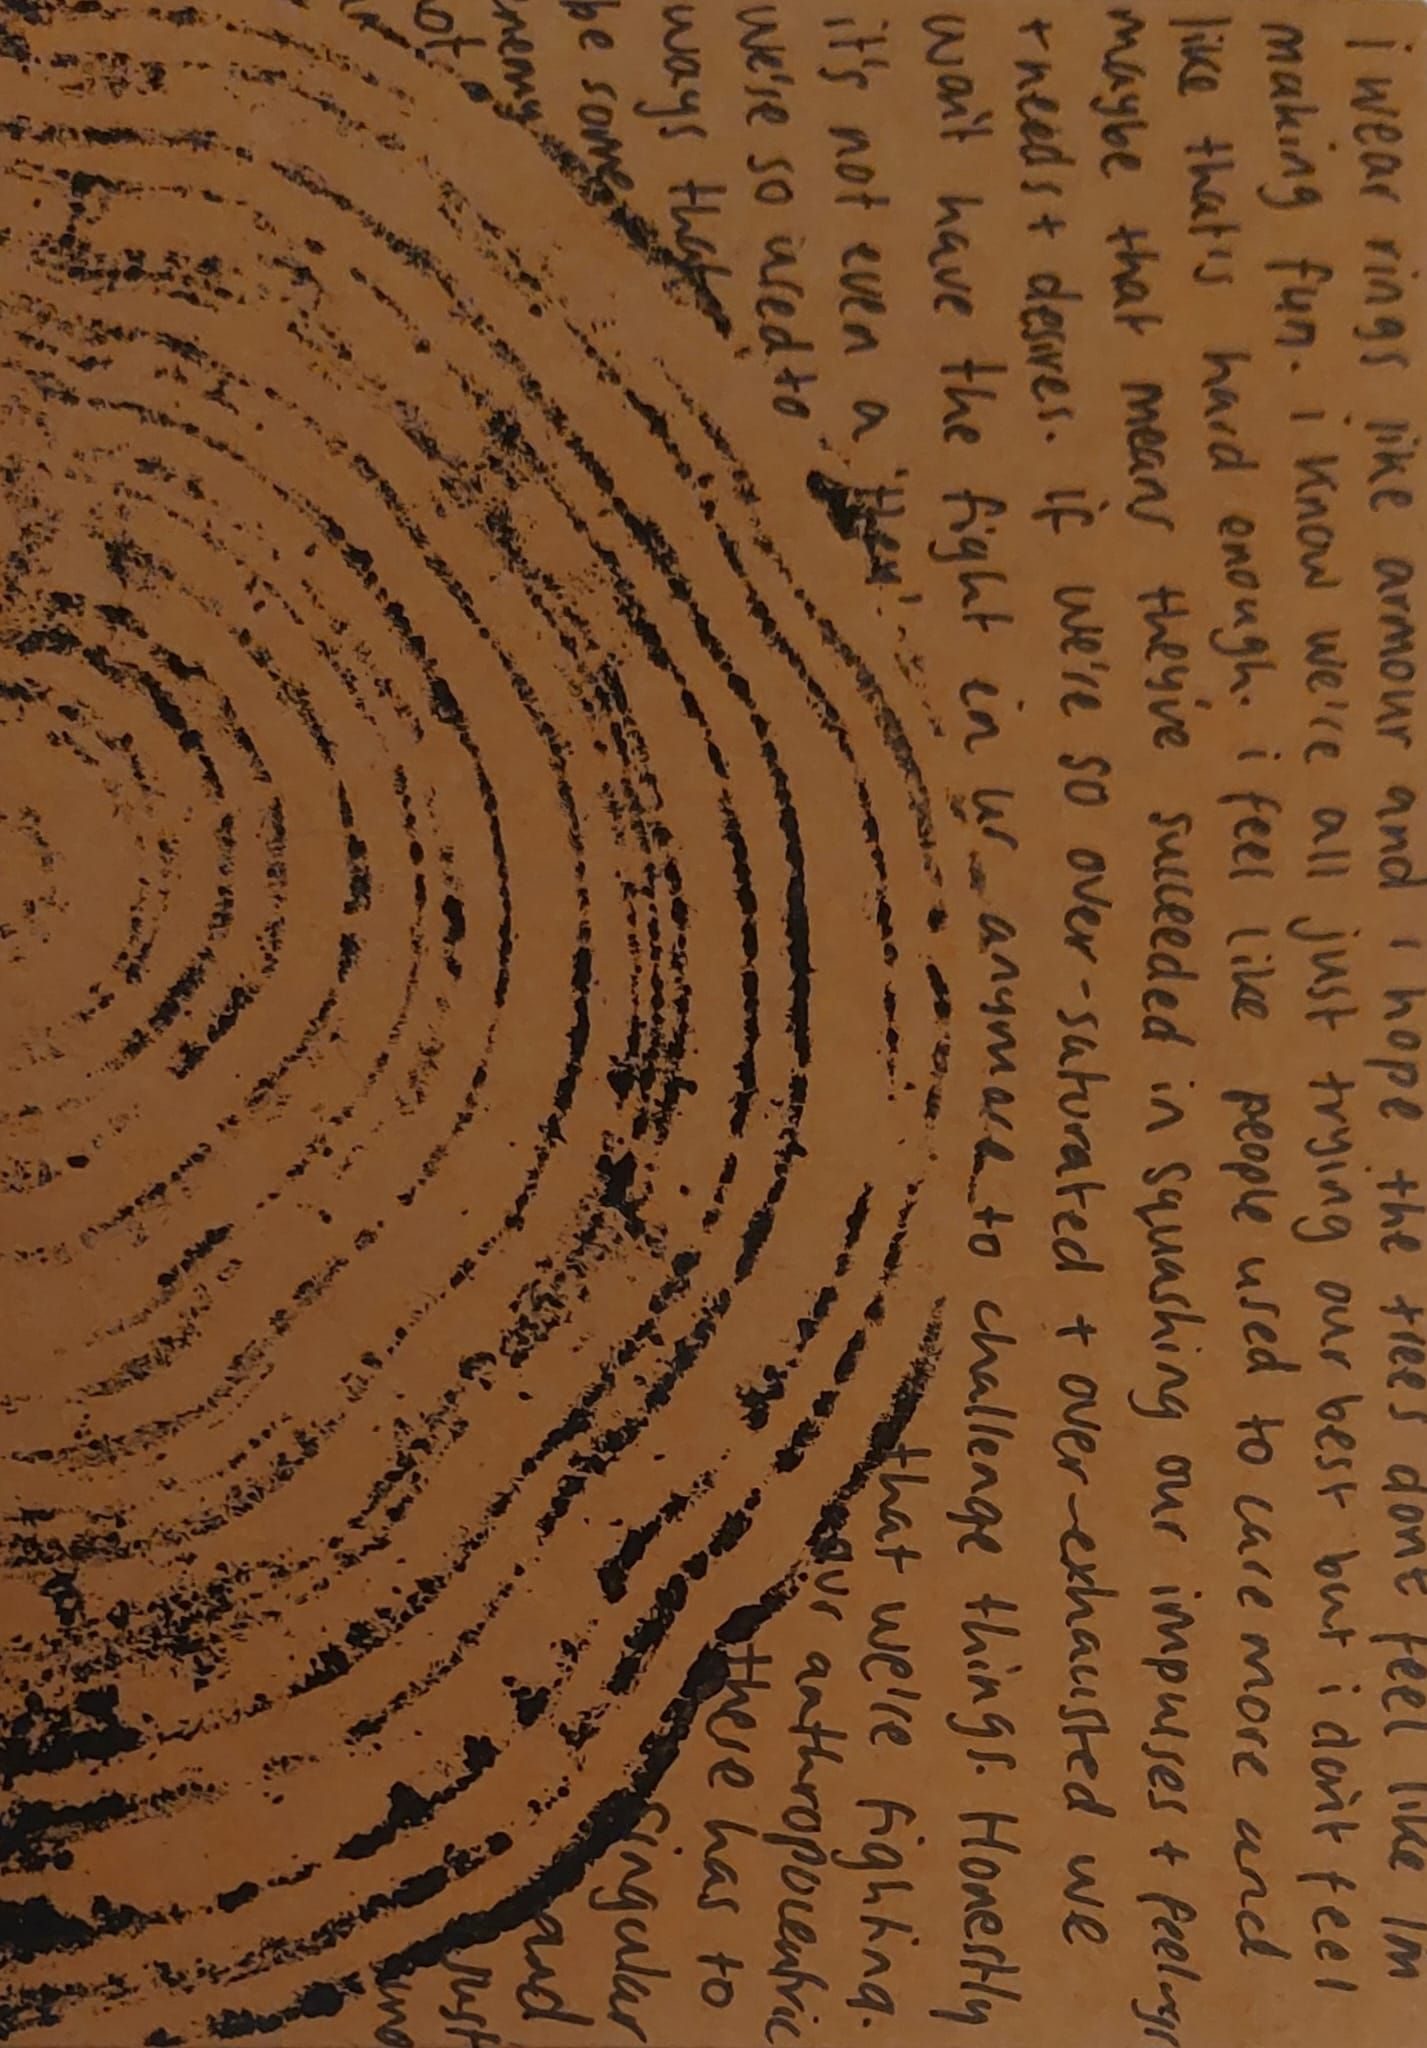 i wear rings like armour and i hope the trees don't feel like I'm
making fun. i know we're all just trying our best but i don't feel
like that's hard enough. i feel like people used to care more and
maybe that means they've succeeded in squashing our impulses + feelings
+ needs + desires. If we're so over-saturated + over-exhausted we
won't have the fight in us anymore to challenge things. Honestly
it's not even a 'they' that we're fighting.
we're so used to our anthropocentric
ways that these has to
be some singular
enemy and
not just
und